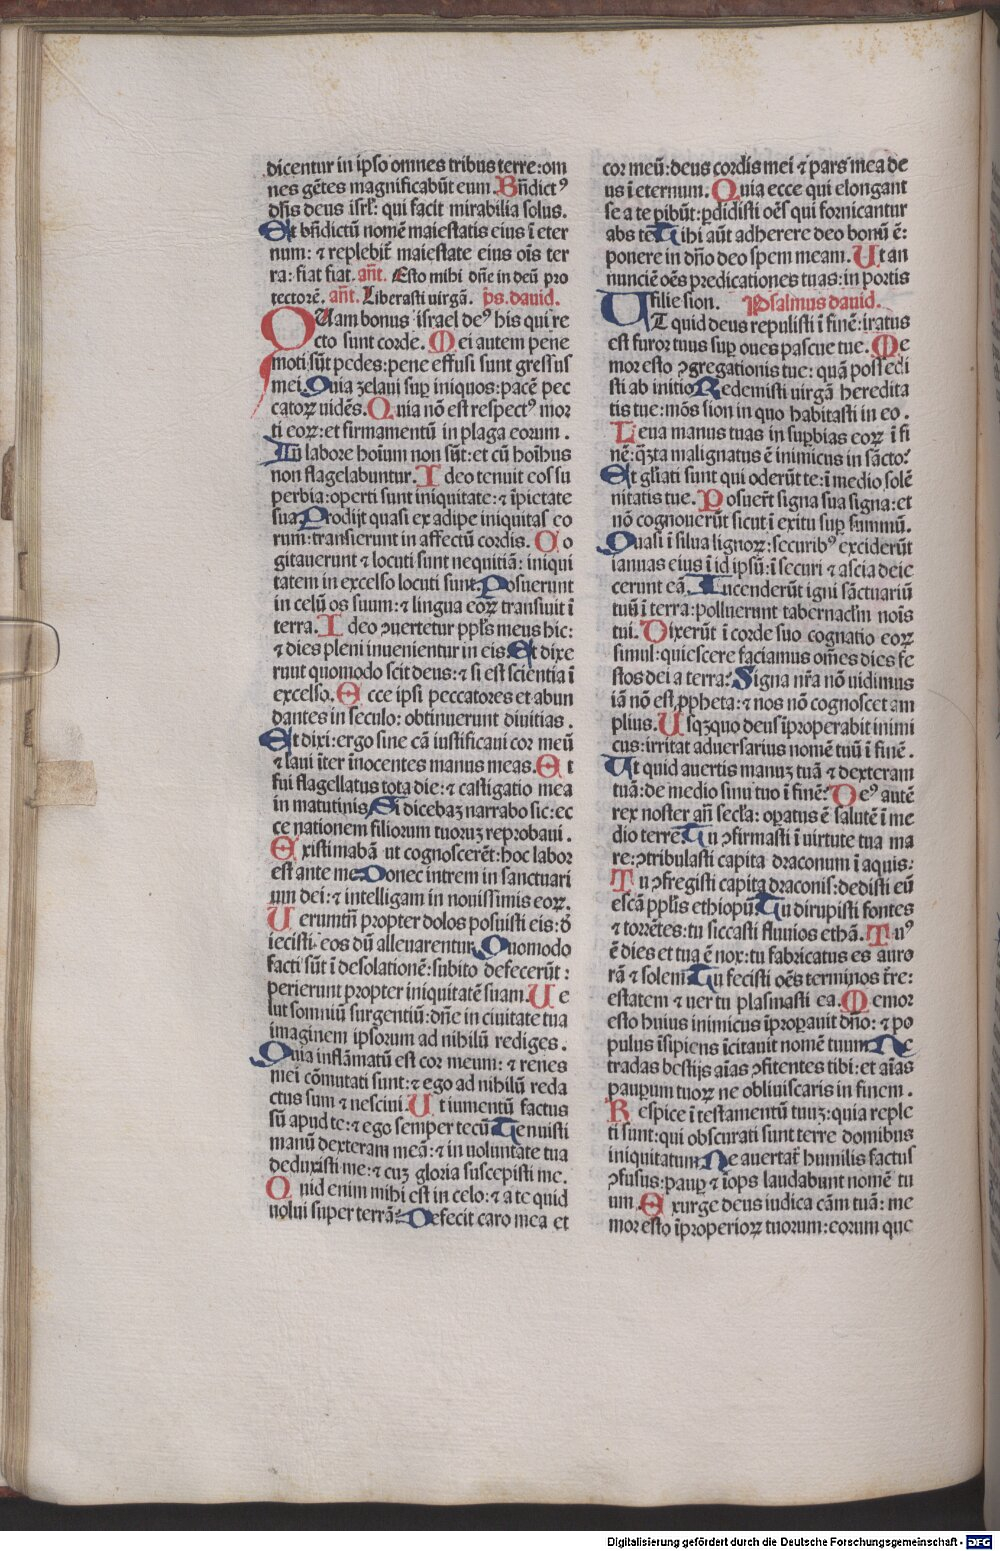 dicentur in ipso omnes tribus terre: om
nes gẽtes magnificabũt eum. Bñdict⁹
dñs deus isrl̃: qui facit mirabilia solus.
Et bñdictũ nomẽ maiestatis eius ĩ eter
num: ⁊ replebit̃ maiestate eius oĩs ter
ra: fiat fiat. añt. Esto mihi dñe in deũ pro
tectorẽ. añt. Liberasti uirgã. ps. dauid.
QUam bonus israel de⁹ his qui re
cto sunt corde. Mei autem pene
moti sũt pedes: pene effusi sunt gressus
mei. Quia zelaui sup iniquos: pacẽ pec
catoꝝ uidẽs. Quia nõ est respect⁹ mor
ti eoꝝ: et firmamentũ in plaga eorum.
In labore hoĩum non sũt: et cũ hoĩbus
non flagelabuntur. Ideo tenuit eos su
perbia: operti sunt iniquitate: ⁊ ĩpietate
sua. Prodijt quasi ex adipe iniquitas eo
rum: transierunt in affectũ cordis. Co
gitauerunt ⁊ locuti sunt nequitiã: iniqui
tatem in excelso locuti sunt. Posuerunt
in celũ os suum: ⁊ lingua eoꝝ transiuit ĩ
terra. Ideo ꝯuertetur ppl̃s meus hic:
⁊ dies pleni inuenientur in eis. Et dixe
runt quomodo scit deus: ⁊ si est scientia ĩ
excelso. Ecce ipsi peccatores et abun
dantes in seculo: obtinuerunt diuitias.
Et dixi: ergo sine cã iustificaui cor meũ
⁊ laui ĩter ĩnocentes manus meas. Et
fui flagellatus tota die: ⁊ castigatio mea
in matutinis. Si dicebaꝫ narrabo sic: ec
ce nationem filiorum tuoruꝫ reprobaui.
Existimabã ut cognoscerẽt: hoc labor
est ante me. Donec intrem in sanctuari
um dei: ⁊ intelligam in nouissimis eoꝝ.
Uerumtñ propter dolos posuisti eis: d̃
iecisti eos dũ alleuarentur. Quomodo
facti sũt ĩ desolationẽ: subito defecerũt:
perierunt propter iniquitatẽ suam. Ue
lut somniũ surgentiũ: dñe in ciuitate tua
imaginem ipsorum ad nihilũ rediges.
Quia inflãmatũ est cor meum: ⁊ renes
mei cõmutati sunt: ⁊ ego ad nihilũ reda
ctus sum ⁊ nesciui. Ut iumentũ factus
sũ apud te: ⁊ ego semper tecũ. Tenuisti
manũ dexteram meã: ⁊ in uoluntate tua
deduxisti me: ⁊ cuꝫ gloria suscepisti me.
Quid enim mihi est in celo: ⁊ a te quid
uolui super terrã. Defecit caro mea et
cor meũ: deus cordis mei ⁊ pars mea de
us ĩ eternum. Quia ecce qui elongant
se a te pibũt: pdidisti oẽs qui fornicantur
abs te. Mihi aũt adherere deo bonũ ẽ:
ponere in dño deo spem meam. Ut an
nunciẽ oẽs predicationes tuas: in portis
filie sion. Psalmus dauid.
UT quid deus repulisti ĩ finẽ: iratus
est furor tuus sup oues pascue tue. Me
mor esto ꝯgregationis tue: quã possedi
sti ab initio. Redemisti uirgã heredita
tis tue: mõs sion in quo habitasti in eo.
Leua manus tuas in supbias eoꝝ ĩ fi
nẽ: qꝫta malignatus ẽ inimicus in sãcto.
Et gl̃iati sunt qui oderũt te: ĩ medio solẽ
nitatis tue. Posuer̃t signa sua signa: et
nõ cognouerũt sicut ĩ exitu sup summũ.
Quasi ĩ silua lignoꝝ: securib⁹ exciderũt
ianuas eius ĩ id ipsũ: ĩ securi ⁊ ascia deie
cerunt eã. Incenderũt igni sãctuariũ
tuũ ĩ terra: polluerunt tabernacl̃m noĩs
tui. Dixerũt ĩ corde suo cognatio eoꝝ
simul: quiescere faciamus om̃es dies fe
stos dei a terra. Signa nr̃a nõ uidimus
iã nõ est ppheta: ⁊ nos nõ cognoscet am
plius. Usqꝫquo deus ĩproperabit inimi
cus: irritat aduersarius nomẽ tuũ ĩ finẽ.
Ut quid auertis manuꝫ tuã ⁊ dexteram
tuã: de medio sinu tuo ĩ finẽ. De⁹ autẽ
rex noster añ secl̃a: opatus ẽ salutẽ ĩ me
dio terre. Tu ꝯfirmasti ĩ uirtute tua ma
re: ꝯtribulasti capita draconum ĩ aquis.
Tu ꝯfregisti capita draconis: dedisti eũ
escã ppl̃is ethiopũ. Tu dirupisti fontes
⁊ torrẽtes: tu siccasti fluuios ethã. Tu⁹
ẽ dies et tua ẽ nox: tu fabricatus es auro
rã ⁊ solem. Tu fecisti oẽs terminos tr̃e:
estatem ⁊ uer tu plasmasti ea. Memor
esto huius inimicus ĩpropauit dño: ⁊ po
pulus ĩsipiens ĩcitauit nomẽ tuum. Ne
tradas bestijs aĩas ꝯfitentes tibi: et aĩas
paupum tuoꝝ ne obliuiscaris in finem.
Respice ĩ testamentũ tuuꝫ: quia reple
ti sunt: qui obscurati sunt terre domibus
iniquitatum. Ne auertat̃ humilis factus
ꝯfusus: paup ⁊ ĩops laudabunt nomẽ tu
um. Exurge deus iudica cãm tuã: me
mor esto ĩproperioꝝ tuorum: eorum que
Digitalisierung gefördert durch die Deutsche Forschungsgemeinschaft - DFG